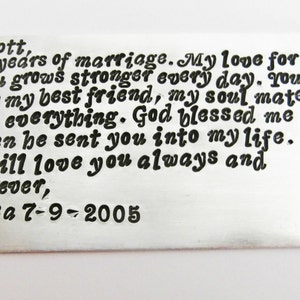 ott,
years of marriage. My love for
u grows stronger every day. You
my best friend, my soul mate
everything. God blessed me
en he sent you into my life.
ill love you always and
ever,
a 7-9-2005